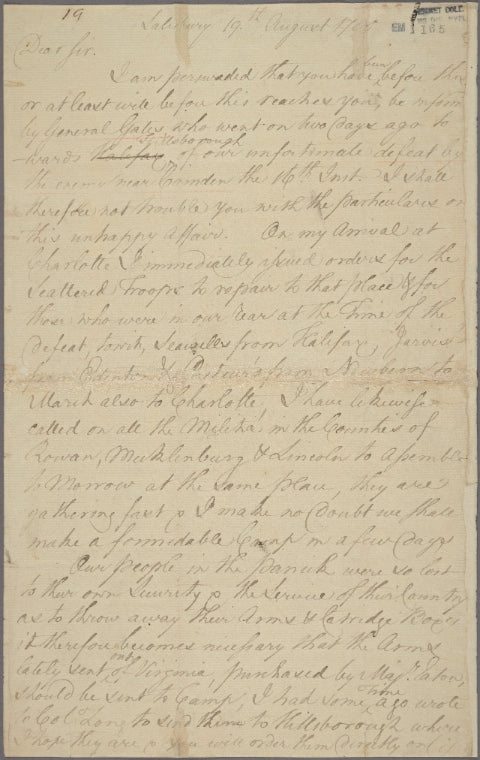 19
Salisbury 19th August 1780
EM 1165
Dear Sir.
I am perswaded that you have been before this
or at least will before this reaches you, be inform
by General Gates, who went on two days ago to
wards Halifax Hillsborough, of our unfortunate defeat by
the enemy near Camden the 16th Inst. I shall
therefore not trouble you with the particulars on
this unhappy affair. On my Arrival at
Charlotte I immediately issued orders for the
Scattered Troops to repair to that place & for
those who were in our rear at the Time of the
defeat, towit, Seawells from Halifax, Jarvis's
from Edenton & from Newbern to
March also to Charlotte, I have likewise
called on all the Militia in the Counties of
Rowan, Mecklenburg & Lincoln to Assemble
to Morrow at the same place, they are
gathering fast & I make no doubt we shall
make a formidable Camp in a few Days
Our people in the panick were so lost
to their own Security & the Service of their Country
as to throw away their Arms & Catridge Boxes
it therefore becomes necessary that the Arms
lately sent out of Virginia, purchased by Majr. Eaton,
should be sent to Camp, I had some time ago wrote
to Col. Long to send them to Hillsborough where
I hope they are & you will order them directly on